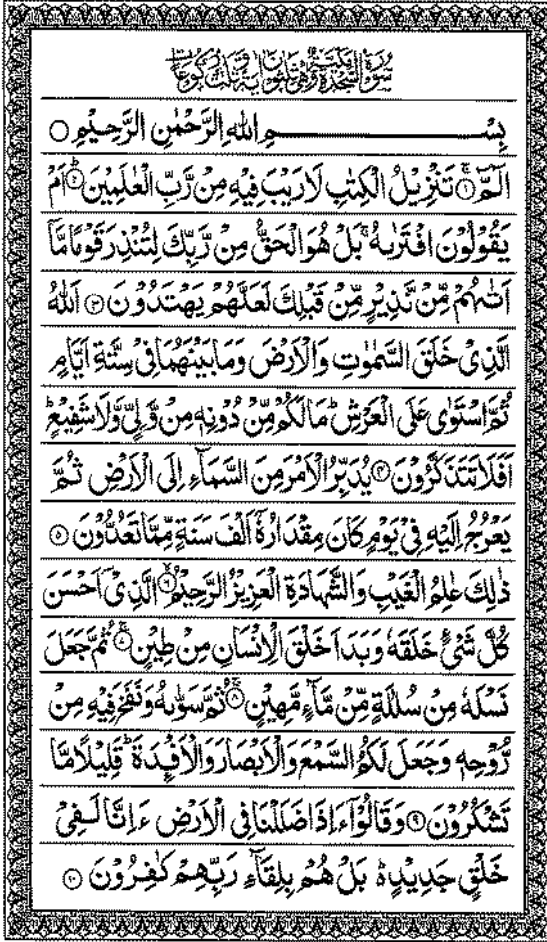 سُوْرَةُ السَّجْدَةِ مَكِّيَّةٌ وَّهِيَ ثَلٰثُوْنَ اٰيَةً وَّثَلٰثُ رُكُوْعَاتٍ
بِسْمِ اللهِ الرَّحْمٰنِ الرَّحِيْمِ ○
الٓمّٓ ۚ﴿۱﴾ تَنْزِيْلُ الْكِتٰبِ لَا رَيْبَ فِيْهِ مِنْ رَّبِّ الْعٰلَمِيْنَ ؕ﴿۲﴾ اَمْ
يَقُوْلُوْنَ افْتَرٰىهُ ۚ بَلْ هُوَ الْحَقُّ مِنْ رَّبِّكَ لِتُنْذِرَ قَوْمًا مَّاۤ
اَتٰىهُمْ مِّنْ نَّذِيْرٍ مِّنْ قَبْلِكَ لَعَلَّهُمْ يَهْتَدُوْنَ ﴿۳﴾ اَللهُ
الَّذِيْ خَلَقَ السَّمٰوٰتِ وَالْاَرْضَ وَمَا بَيْنَهُمَا فِيْ سِتَّةِ اَيَّامٍ
ثُمَّ اسْتَوٰى عَلَى الْعَرْشِ ؕ مَا لَكُمْ مِّنْ دُوْنِهٖ مِنْ وَّلِيٍّ وَّلَا شَفِيْعٍ ؕ
اَفَلَا تَتَذَكَّرُوْنَ ﴿۴﴾ يُدَبِّرُ الْاَمْرَ مِنَ السَّمَآءِ اِلَى الْاَرْضِ ثُمَّ
يَعْرُجُ اِلَيْهِ فِيْ يَوْمٍ كَانَ مِقْدَارُهٗۤ اَلْفَ سَنَةٍ مِّمَّا تَعُدُّوْنَ ﴿۵﴾
ذٰلِكَ عٰلِمُ الْغَيْبِ وَالشَّهَادَةِ الْعَزِيْزُ الرَّحِيْمُ ۙ﴿۶﴾ الَّذِيْۤ اَحْسَنَ
كُلَّ شَيْءٍ خَلَقَهٗ وَبَدَاَ خَلْقَ الْاِنْسَانِ مِنْ طِيْنٍ ۚ﴿۷﴾ ثُمَّ جَعَلَ
نَسْلَهٗ مِنْ سُلٰلَةٍ مِّنْ مَّآءٍ مَّهِيْنٍ ۚ﴿۸﴾ ثُمَّ سَوّٰىهُ وَنَفَخَ فِيْهِ مِنْ
رُّوْحِهٖ وَجَعَلَ لَكُمُ السَّمْعَ وَالْاَبْصَارَ وَالْاَفْـِٕدَةَ ؕ قَلِيْلًا مَّا
تَشْكُرُوْنَ ﴿۹﴾ وَقَالُوْۤا ءَاِذَا ضَلَلْنَا فِي الْاَرْضِ ءَاِنَّا لَفِيْ
خَلْقٍ جَدِيْدٍ ؕ بَلْ هُمْ بِلِقَآءِ رَبِّهِمْ كٰفِرُوْنَ ﴿۱۰﴾